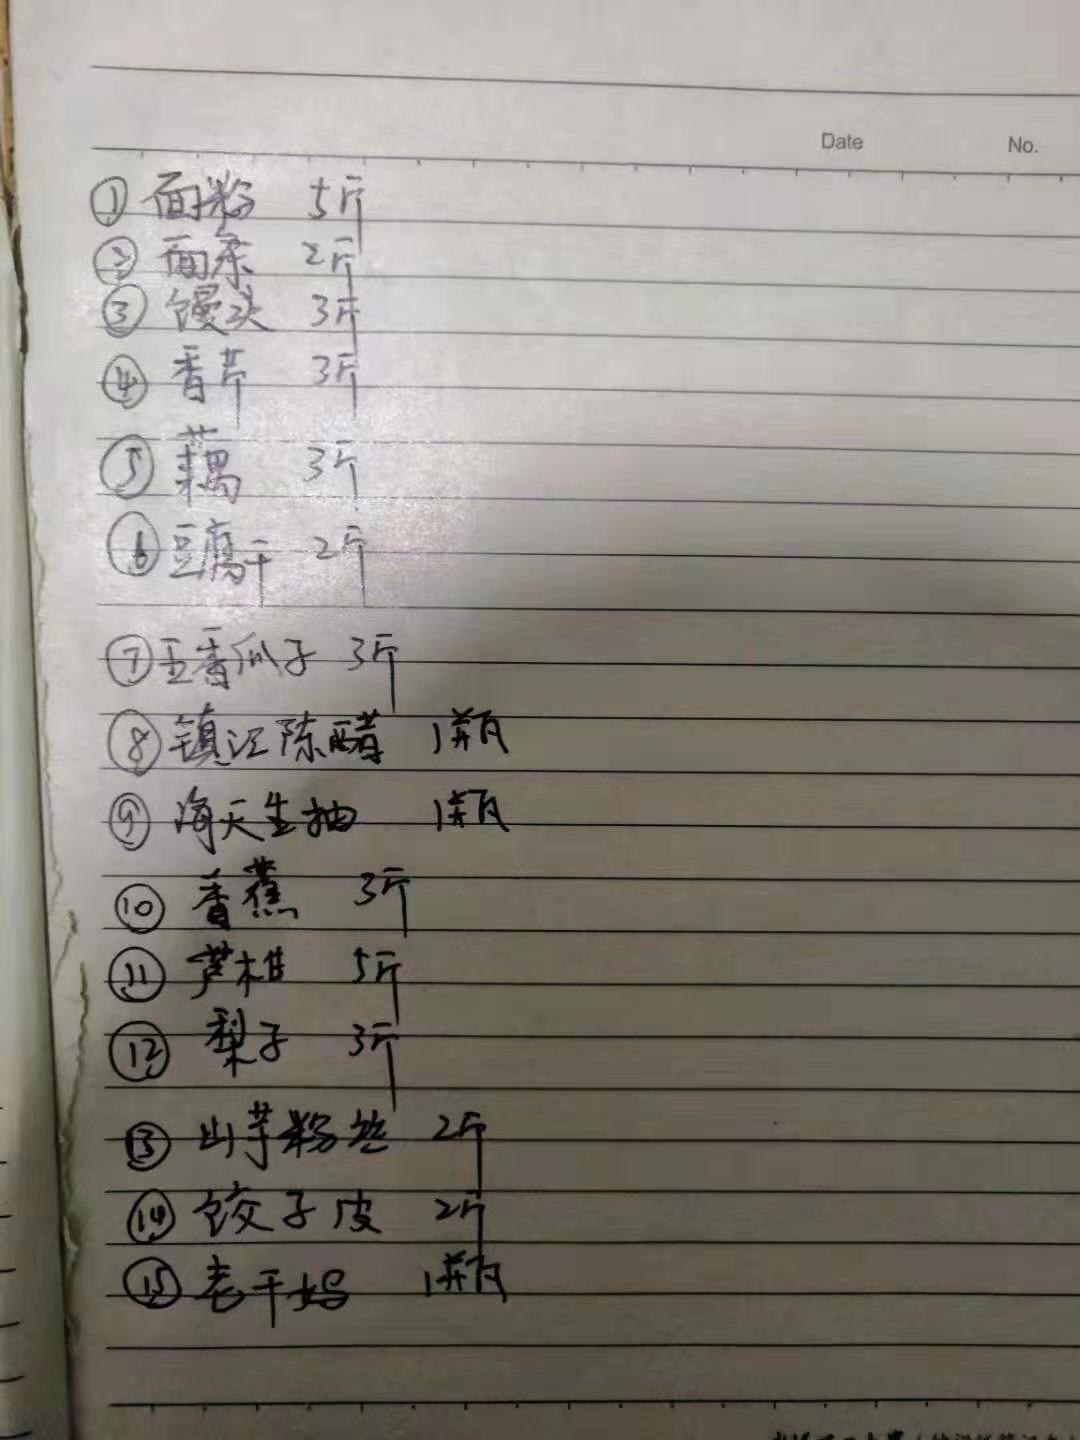 Date No.
① 面粉 5斤
② 面条 2斤
③ 馒头 3斤
④ 香芹 3斤
⑤ 藕 3斤
⑥ 豆腐干 2斤
⑦ 五香瓜子 3斤
⑧ 镇江陈醋 1瓶
⑨ 海天生抽 1瓶
⑩ 香蕉 3斤
⑪ 芦柑 5斤
⑫ 梨子 3斤
⑬ 山芋粉丝 2斤
⑭ 饺子皮 2斤
⑮ 老干妈 1瓶